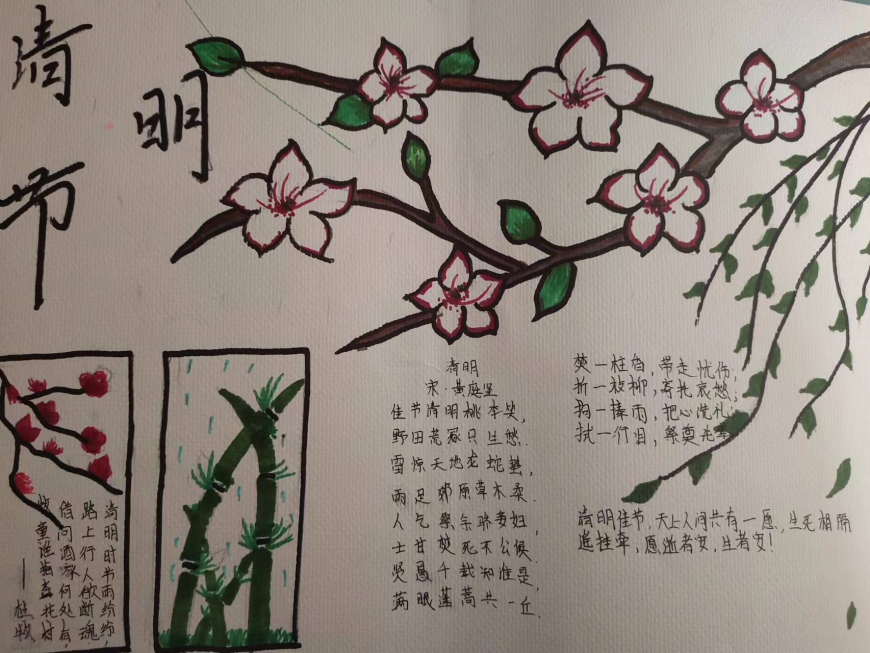 清明节
清明时节雨纷纷,
路上行人欲断魂
借问酒家何处有,
牧童遥指杏花村
——杜牧
清明
宋·黄庭坚
佳节清明桃李笑,
野田荒冢只生愁.
雷惊天地龙蛇蛰,
雨足郊原草木柔.
人乞祭余骄妾妇,
士甘焚死不公侯.
贤愚千载知谁是,
满眼蓬蒿共一丘.
焚一柱香,带走忧伤;
折一枝柳,寄托哀愁;
掬一捧雨,把心洗礼;
拭一行目,祭奠先辈
清明佳节,天上人间共有一愿,生死相隔
遥挂牵,愿逝者安,生者安!